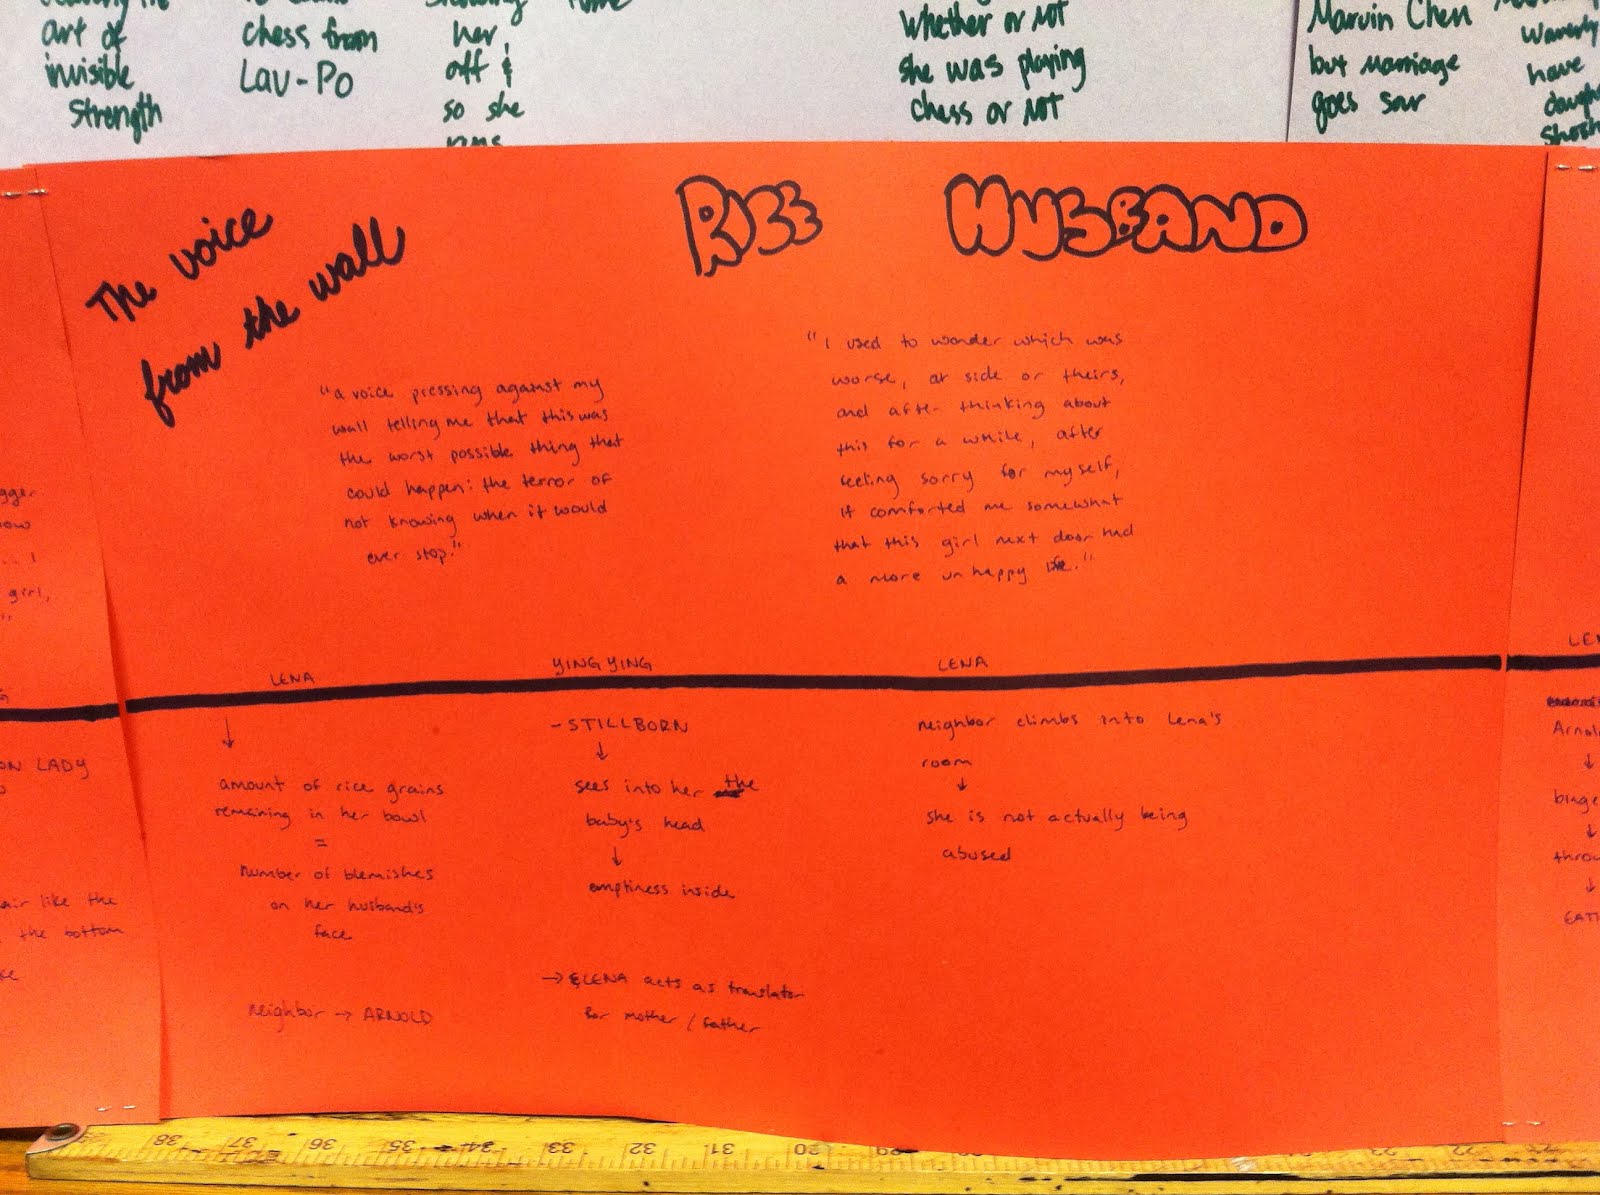 art of
invisible
strength
chess from
Lau-Po
her
off &
so she
runs
whether or not
she was playing
chess or not
Marvin Chen
but marriage
goes sour
waverly
have
The voice
from the wall
RICE HUSBAND
"a voice pressing against my
wall telling me that this was
the worst possible thing that
could happen: the terror of
not knowing when it would
ever stop."
"I used to wonder which was
worse, our side or theirs,
and after thinking about
this for a while, after
feeling sorry for myself,
it comforted me somewhat
that this girl next door had
a more unhappy life."
girl,
LENA
↓
amount of rice grains
remaining in her bowl
=
number of blemishes
on her husband's
face
neighbor → ARNOLD
YING YING
- STILLBORN
↓
sees into her the
baby's head
↓
emptiness inside
→ LENA acts as translator
for mother / father
LENA
neighbor climbs into Lena's
room
↓
she is not actually being
abused
LADY
air like the
the bottom
38 37 36 35 34 33 32 31 30 29